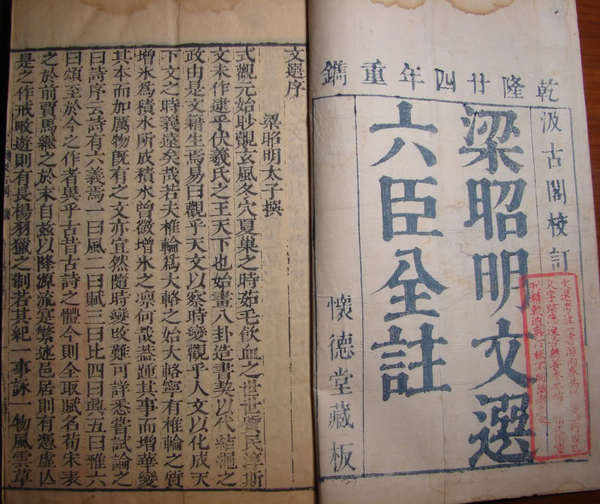 乾隆廿四年重鐫
汲古閣校訂
梁昭明文選
六臣全註
懷德堂藏板
文選序
梁昭明太子撰
式觀元始眇覿玄風冬穴夏巢之時茹毛飲血之世世質民淳斯
文未作逮乎伏羲氏之王天下也始畫八卦造書契以代結繩之
政由是文籍生焉易曰觀乎天文以察時變觀乎人文以化成天
下文之時義遠矣哉若夫椎輪為大輅之始大輅寧有椎輪之質
增氷為積水所成積水曾微增氷之凜何哉蓋踵其事而增華變
其本而加厲物既有之文亦宜然隨時變改難可詳悉嘗試論之
曰詩序云詩有六義焉一曰風二曰賦三曰比四曰興五曰雅六
曰頌至於今之作者異乎古昔古詩之體今則全取賦名荀宋表
之於前賈馬繼之於末自茲以降源流寔繁述邑居則有憑虛亡
是之作戒畋遊則有長楊羽獵之制若其紀一事詠 物風雲草